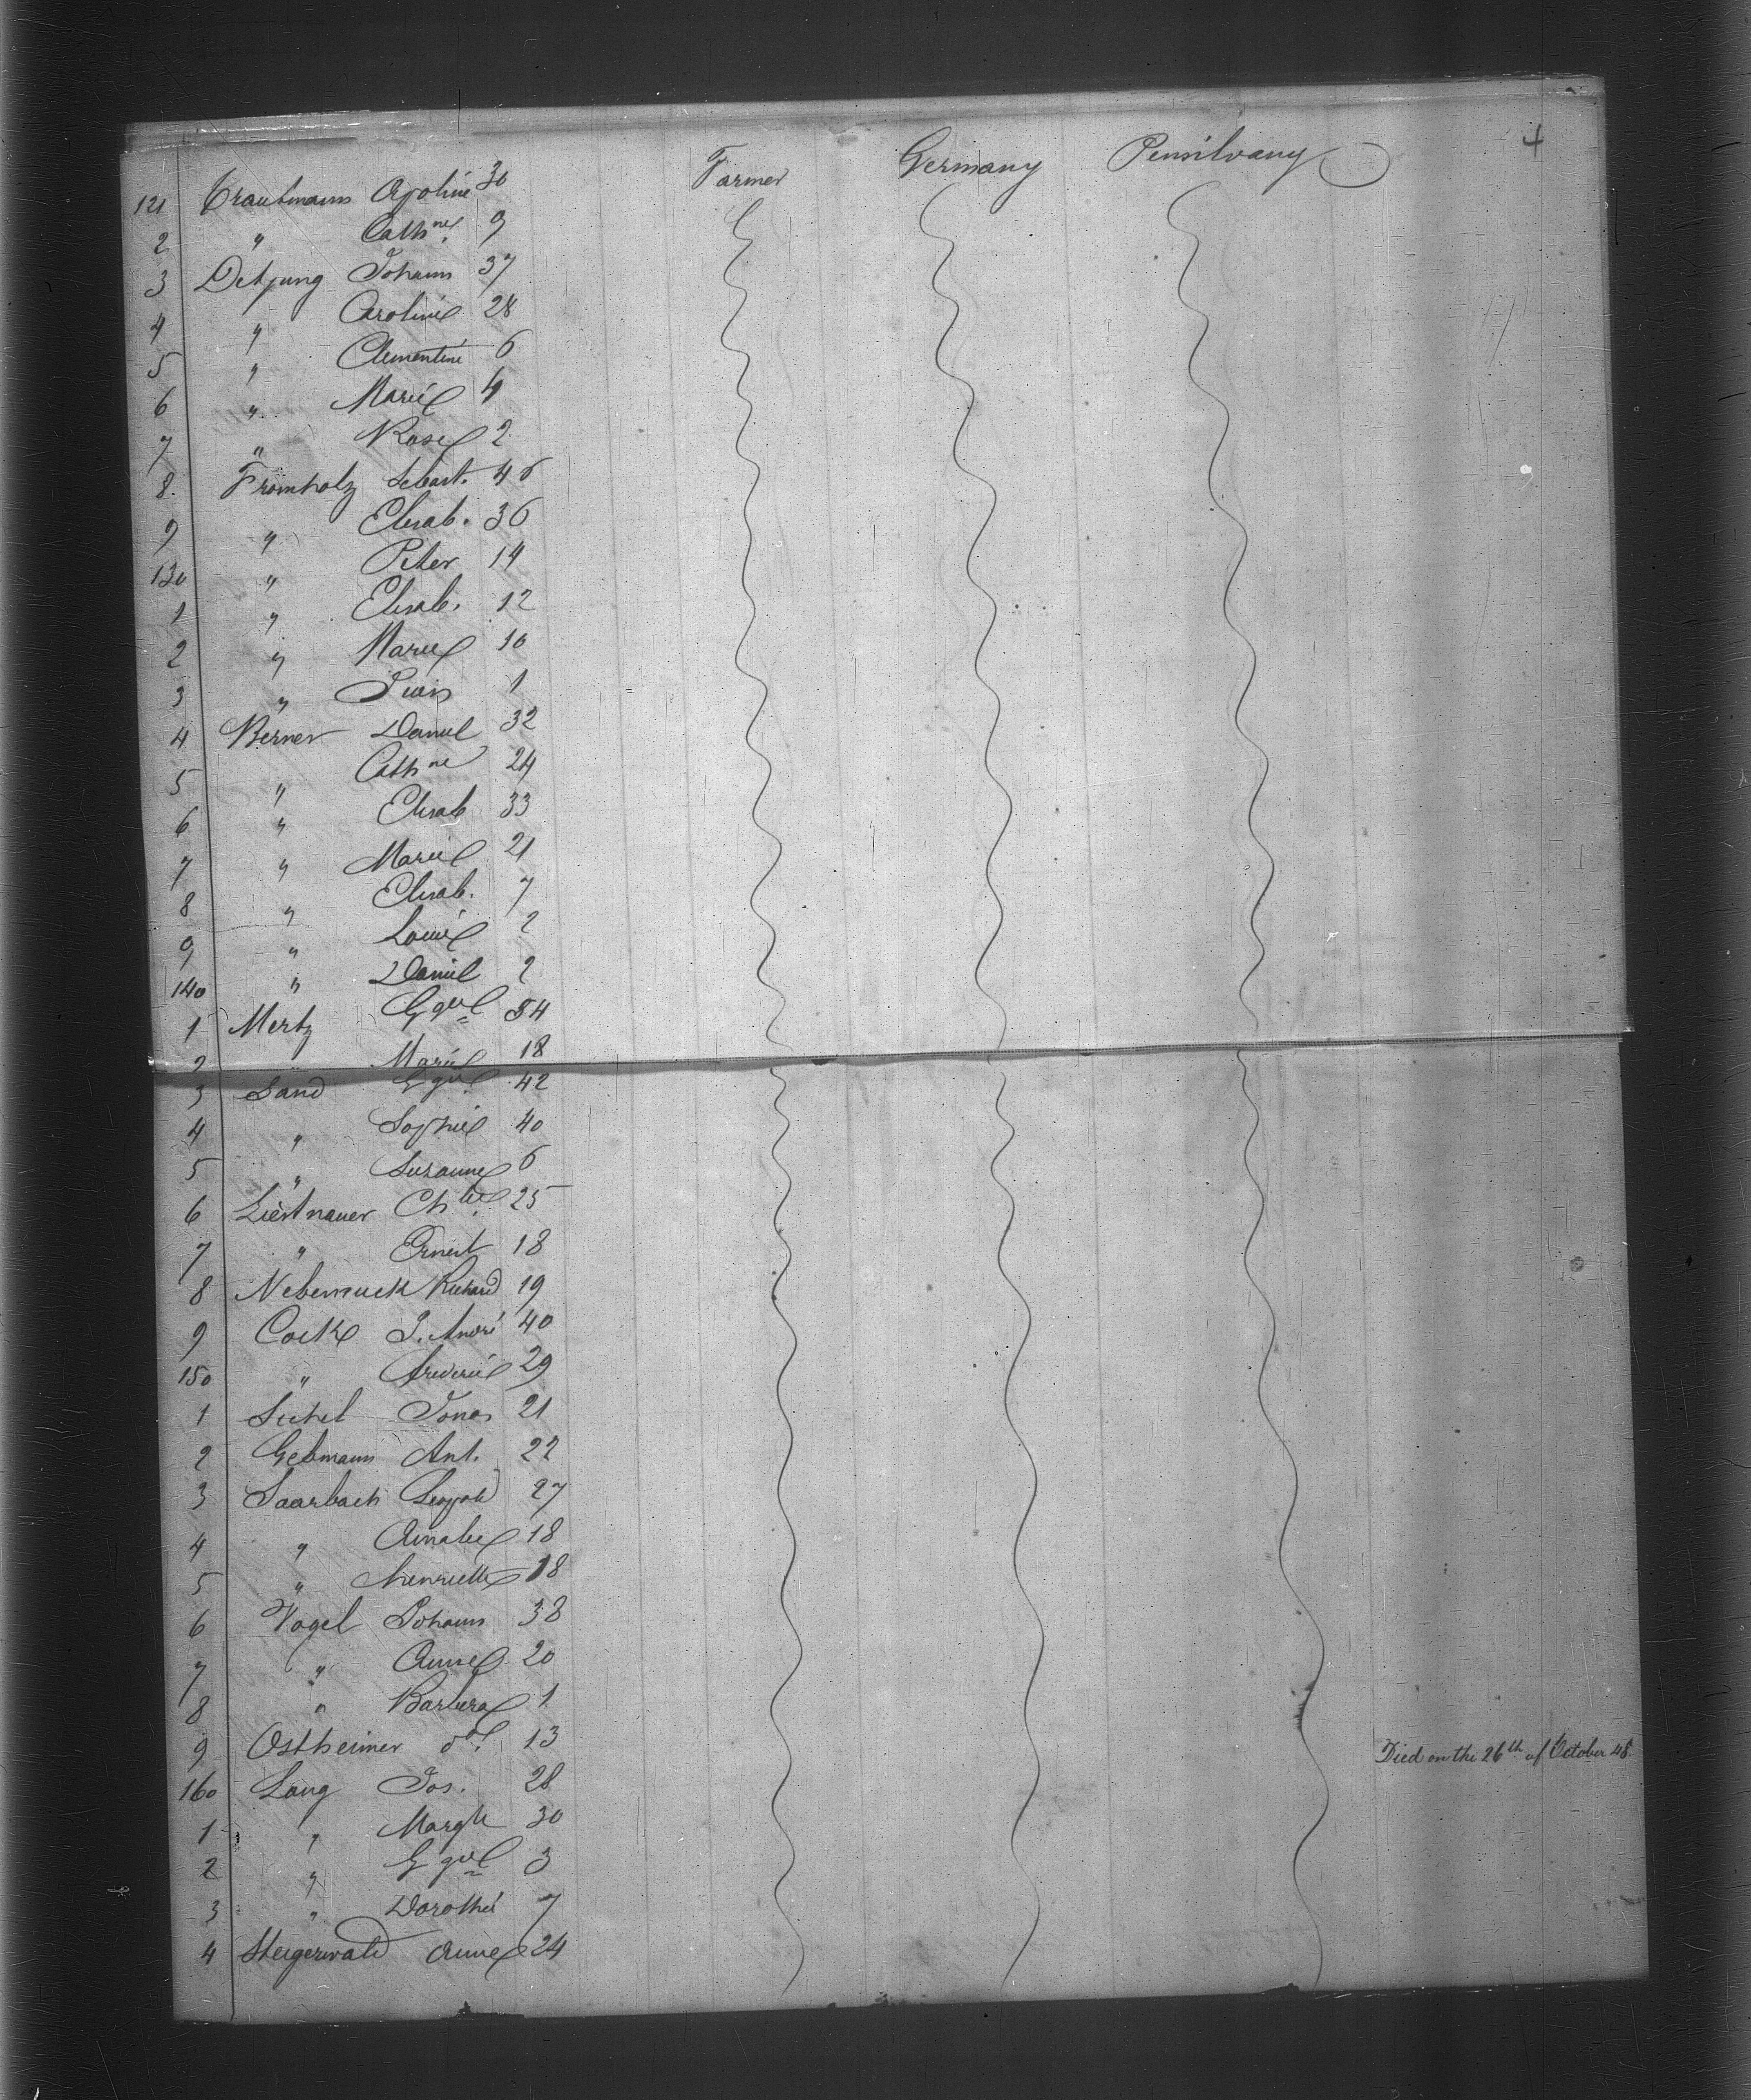 4
Farmer Germany Pensilvany
121 Trautmann Apoline 30
2 " Cath.ne 9
3 Detjung Johann 37
4 " Caroline 28
5 " Clementine 6
6 " Marie 4
7 " Rose 2
8 Fromholz Sebast. 46
9 " Elisab. 36
130 " Peter 14
1 " Elisab. 12
2 " Marie 10
3 " 1
4 Berner Daniel 32
5 " Cath ne 24
6 " Elisab 33
7 " Marie 21
8 " Elisab. 7
9 " Louise 2
140 " Daniel 2
1 Mertz 54
2 " Marie 18
3 Sand 42
4 " Sophie 40
5 " Suzanne 6
6 Liestnauer 25
7 " Ernest 18
8 Richard 19
9 J. André 40
150 " 29
1 Sichel Jonas 21
2 Gebmann Ant. 22
3 Saarbach Leopold 27
4 " Amalie 18
5 " henriette 18
6 Vogel Johann 38
7 " Anne 20
8 " Barbera 1
9 Ostheimer do. 13 Died on the 26th of October 48.
160 Lang Jos. 28
1 " Margte 30
2 " 3
3 " Dorothé 7
4 Steigerwald Anne 24